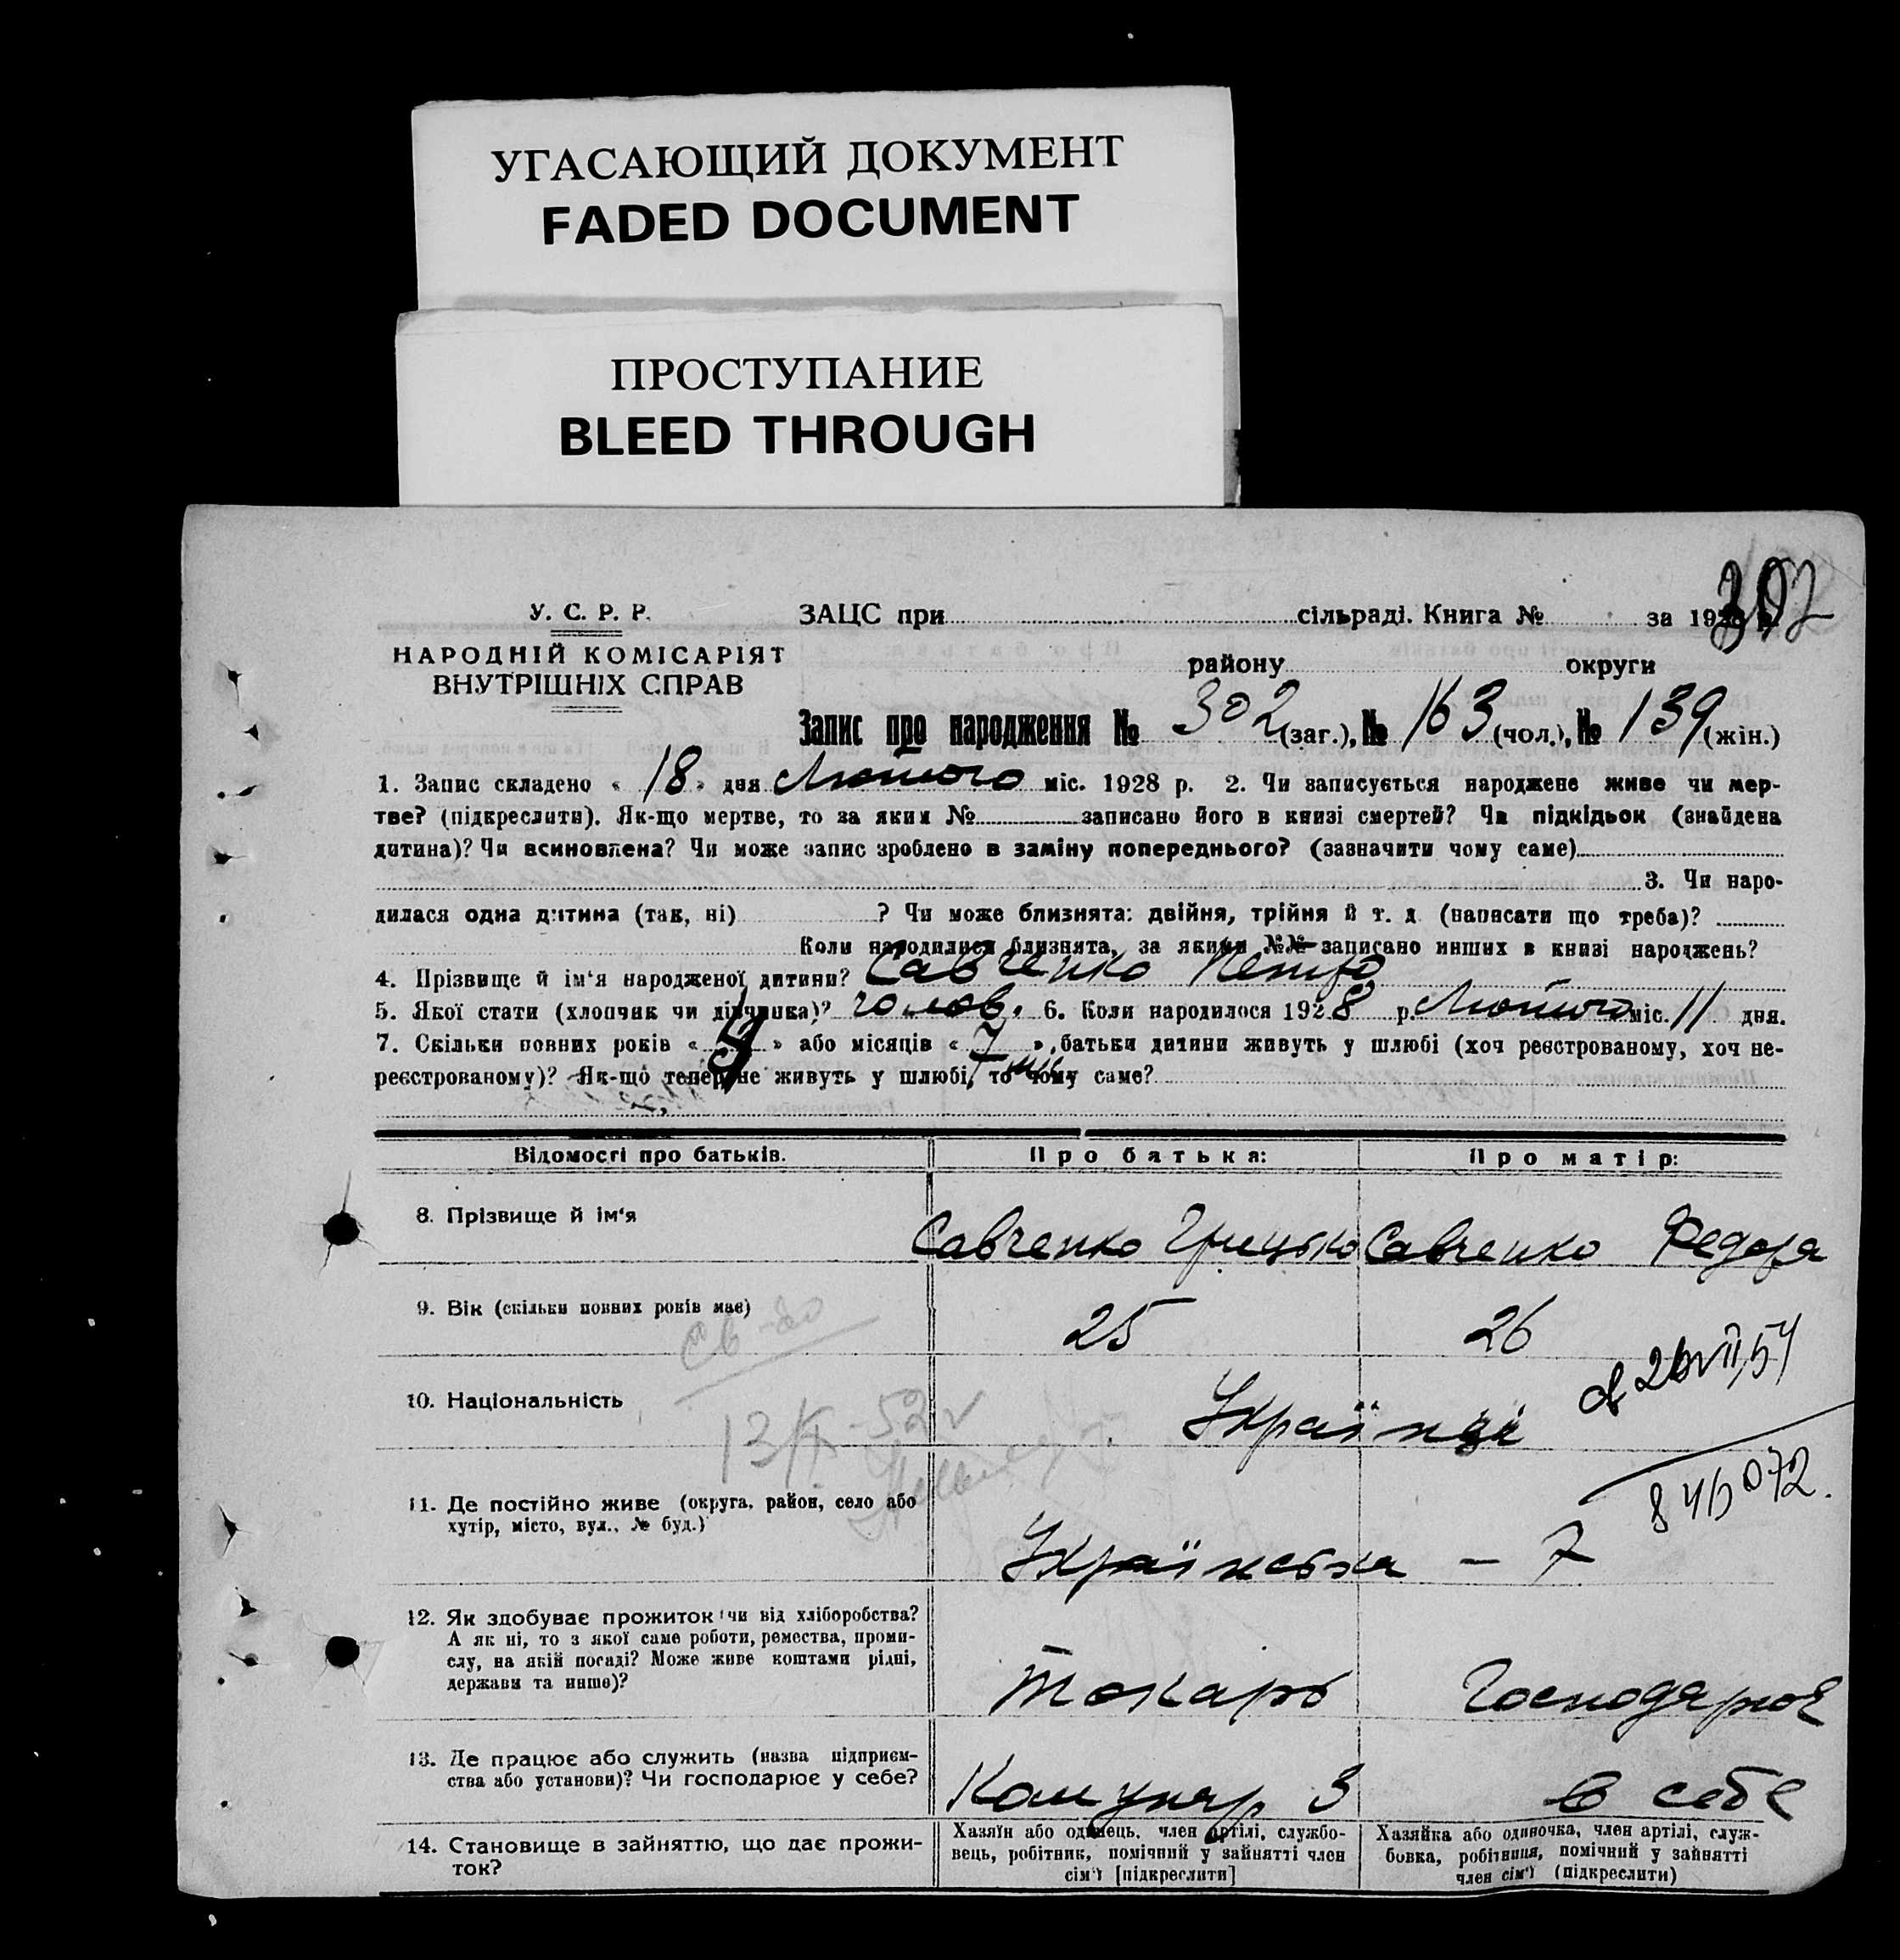 УГАСАЮЩИЙ ДОКУМЕНТ
FADED DOCUMENT
ПРОСТУПАНИЕ
BLEED THROUGH
302
У. С. Р. Р.
НАРОДНІЙ КОМІСАРІЯТ
ВНУТРІШНІХ СПРАВ
ЗАЦС при сільраді. Книга № за 192
району округи
Запис про народження № 302 (заг.), № 163 (чол.), № 139 (жін.)
1. Запис складено « 18 » дня Лютого міс. 1928 р. 2. Чи записується народжене живе чи мер-
тве? (підкреслити). Як-що мертве, то за яким № записано його в книзі смертей? Чи підкідьок (знайдена
дитина)? Чи всиновлена? Чи може запис зроблено в заміну попереднього? (зазначити чому саме)
3. Чи наро-
дилася одна дитина (так, ні) ? Чи може близнята: двійня, трійня й т. д. (написати що треба)?
Коли народилися близнята, за якими №№ записано инших в книзі народжень?
4. Прізвище й ім‘я народженої дитини? Савченко Петро
5. Якої стати (хлопчик чи дівчинка)? чолов. 6. Коли народилося 1928 р. Лютого міс. 11 дня.
7. Скільки повних років « » або місяців « 7 » батьки дитини живуть у шлюбі (хоч реєстрованому, хоч не-
реєстрованому)? Як-що тепер не живуть у шлюбі, то чому саме?
Відомості про батьків.
Про батька:
Про матір:
8. Прізвище й ім‘я
Савченко Грицько
Савченко Федора
9. Вік (скільки повних років має)
25
26
10. Національність
Українці
13/X-52
11. Де постійно живе (округа, район, село або
хутір, місто, вул., № буд.)
Українська – 7
12. Як здобуває прожиток чи від хліборобства?
А як ні, то з якої саме роботи, ремества, проми-
слу, на якій посаді? Може живе коштами рідні,
держави та инше)?
Токарь
Господарює
13. Де працює або служить (назва підприєм-
ства або установи)? Чи господарює у себе?
Комунар 3
в себе
14. Становище в зайняттю, що дає прожи-
ток?
Хазяїн або одинець, член артілі, службо-
вець, робітник, помічний у зайнятті член
сім‘ї [підкреслити]
Хазяйка або одиночка, член артілі, служ-
бовка, робітниця, помічний у зайнятті
член сім‘ї (підкреслити)